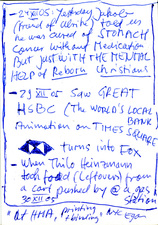 - 24 XII 05: Yesterday Jakob
(friend of Alvita) told us
he was cured of STOMACH
Cancer without Medication
But just WITH THE MENTAL
HELP of Reborn Christians
- 29 XII 05 Saw GREAT
HSBC (The WORLD'S LOCAL BANK
Animation on TIMES SQUARE
turns into Fox
- When Thilo Heinzmann
took food (leftovers) from
a cart pushed by @ a gas station
30 XII 05
"at HMA, printing
& binding" NYC